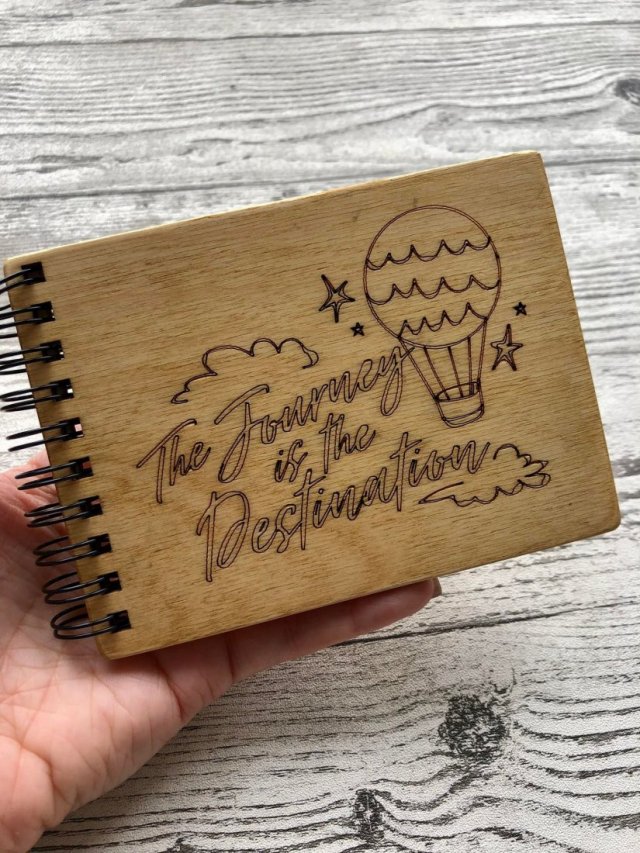 The Journey
is the
Destination